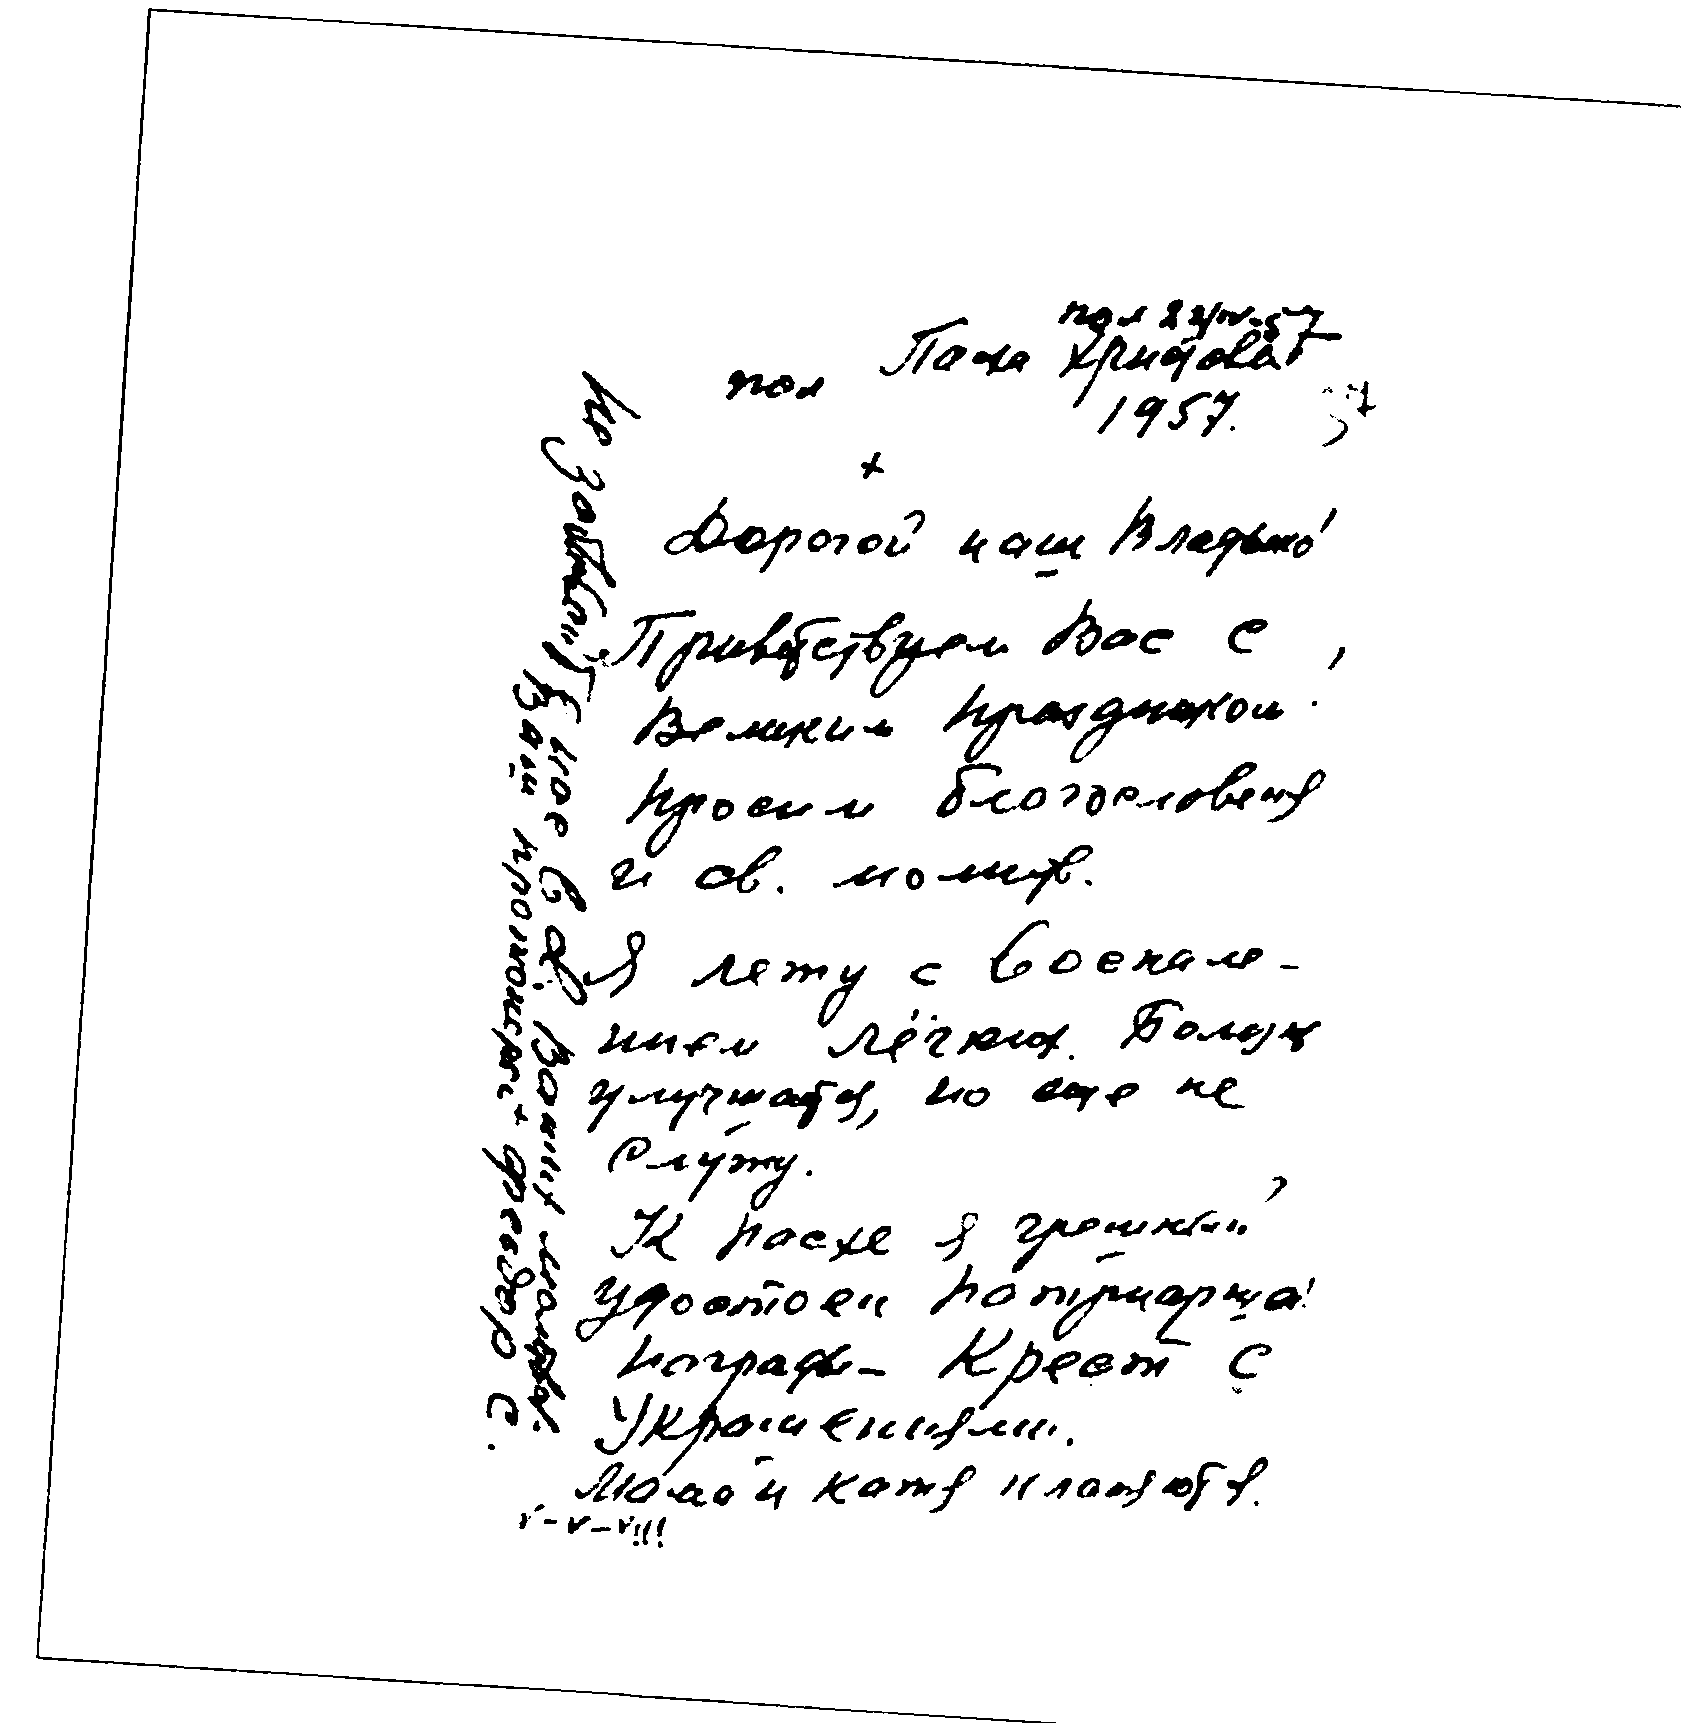 пол 22/IV-57
Пасха Христова
пол
1957.
+
Дорогой наш Владыко!
Приветствуем Вас с
Великим праздником!
Просим благословения
и св. молитв.
Я лежу с воспале-
нием лёгких. Болезнь
улучшается, но еще не
служу.
К Пасхе я грешный
удостоен Патриарша
награды - Крест с
Украшениями.
Люба и Катя кланяются.
Не забывайте нас в св. Ваших молитвах.
Ваш протоиерей + Феодор С.